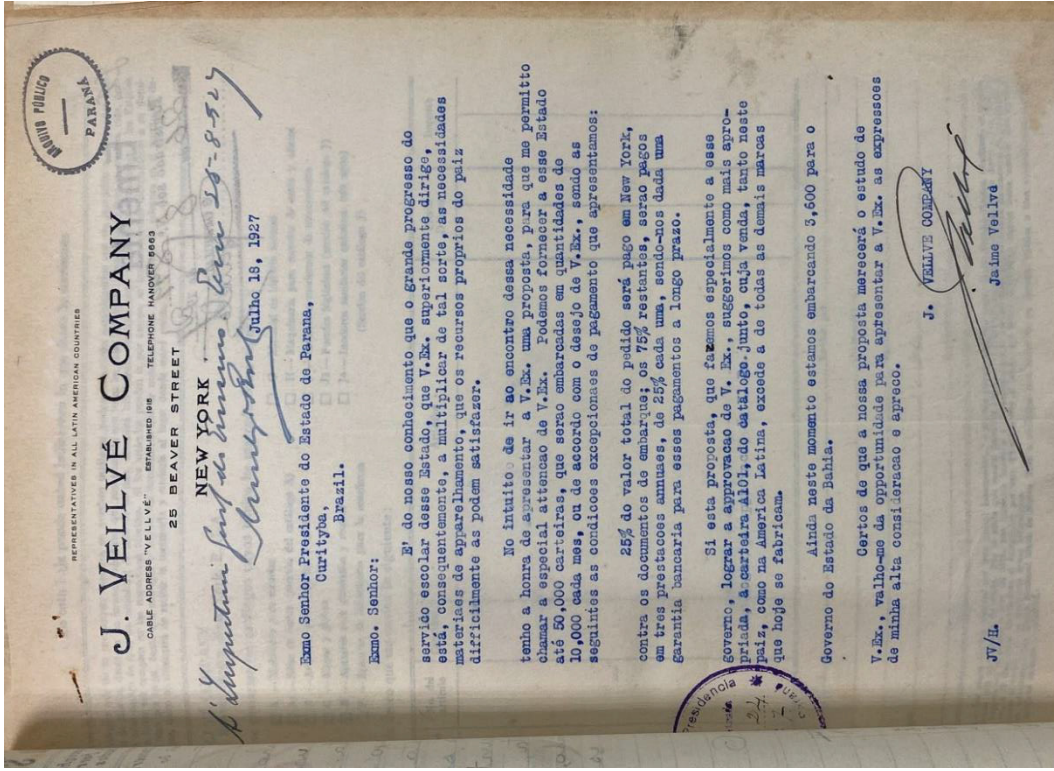 ARQUIVO PÚBLICO
PARANÁ
REPRESENTATIVES IN ALL LATIN AMERICAN COUNTRIES
J. VELLVÉ COMPANY
CABLE ADDRESS "VELLVÉ" ESTABLISHED 1915 TELEPHONE HANOVER 5663
25 BEAVER STREET
NEW YORK
Em 25-8-927
Julho 18, 1927
Exmo Senhor Presidente do Estado de Parana,
Curityba,
Brazil.
Exmo. Senhor:
E' do nosso conhecimento que o grande progresso do
servico escolar desse Estado, que V.Ex. superiormente dirige,
está, consequentemente, a multiplicar de tal sorte, as necessidades
materiaes de apparelhamento, que os recursos proprios do paiz
difficilmente as podem satisfazer.
No intuito de ir ao encontro dessa necessidade
tenho a honra de apresentar a V.Ex. uma proposta, para que me permitto
chamar a especial attencao de V.Ex. Podemos fornecer a esse Estado
até 50,000 carteiras, que serao embarcadas em quantidades de
10,000 cada mes, ou de accordo com o desejo de V.Ex., sendo as
seguintes as condicoes excepcionaes de pagamento que apresentamos:
25% do valor total do pedido será pago em New York,
contra os documentos de embarque; os 75% restantes, serao pagos
em tres prestacoes annaes, de 25% cada uma, sendo-nos dada uma
garantia bancaria para esses pagamentos a longo prazo.
Si esta proposta, que fazemos especialmente a esse
governo, lograr a approvacao de V. Ex., suggerimos como mais apro-
priada, a carteira A101, do catalogo junto, cuja venda, tanto neste
paiz, como na America Latina, excede a de todas as demais marcas
que hoje se fabricam.
Ainda neste momento estamos embarcando 3,600 para o
Governo do Estado da Bahia.
Certos de que a nossa proposta merecerá o estudo de
V.Ex., valho-me da opportunidade para apresentar a V.Ex. as expressoes
de minha alta consideracao e apreco.
J. VELLVE COMPANY
Jaime Vellvé
JV/H.
Presidencia